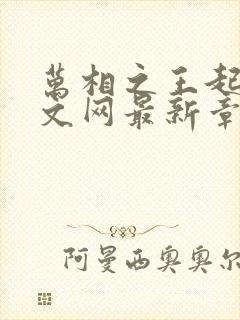 萬相之王起
文网最新章
阿曼西奥奥尔